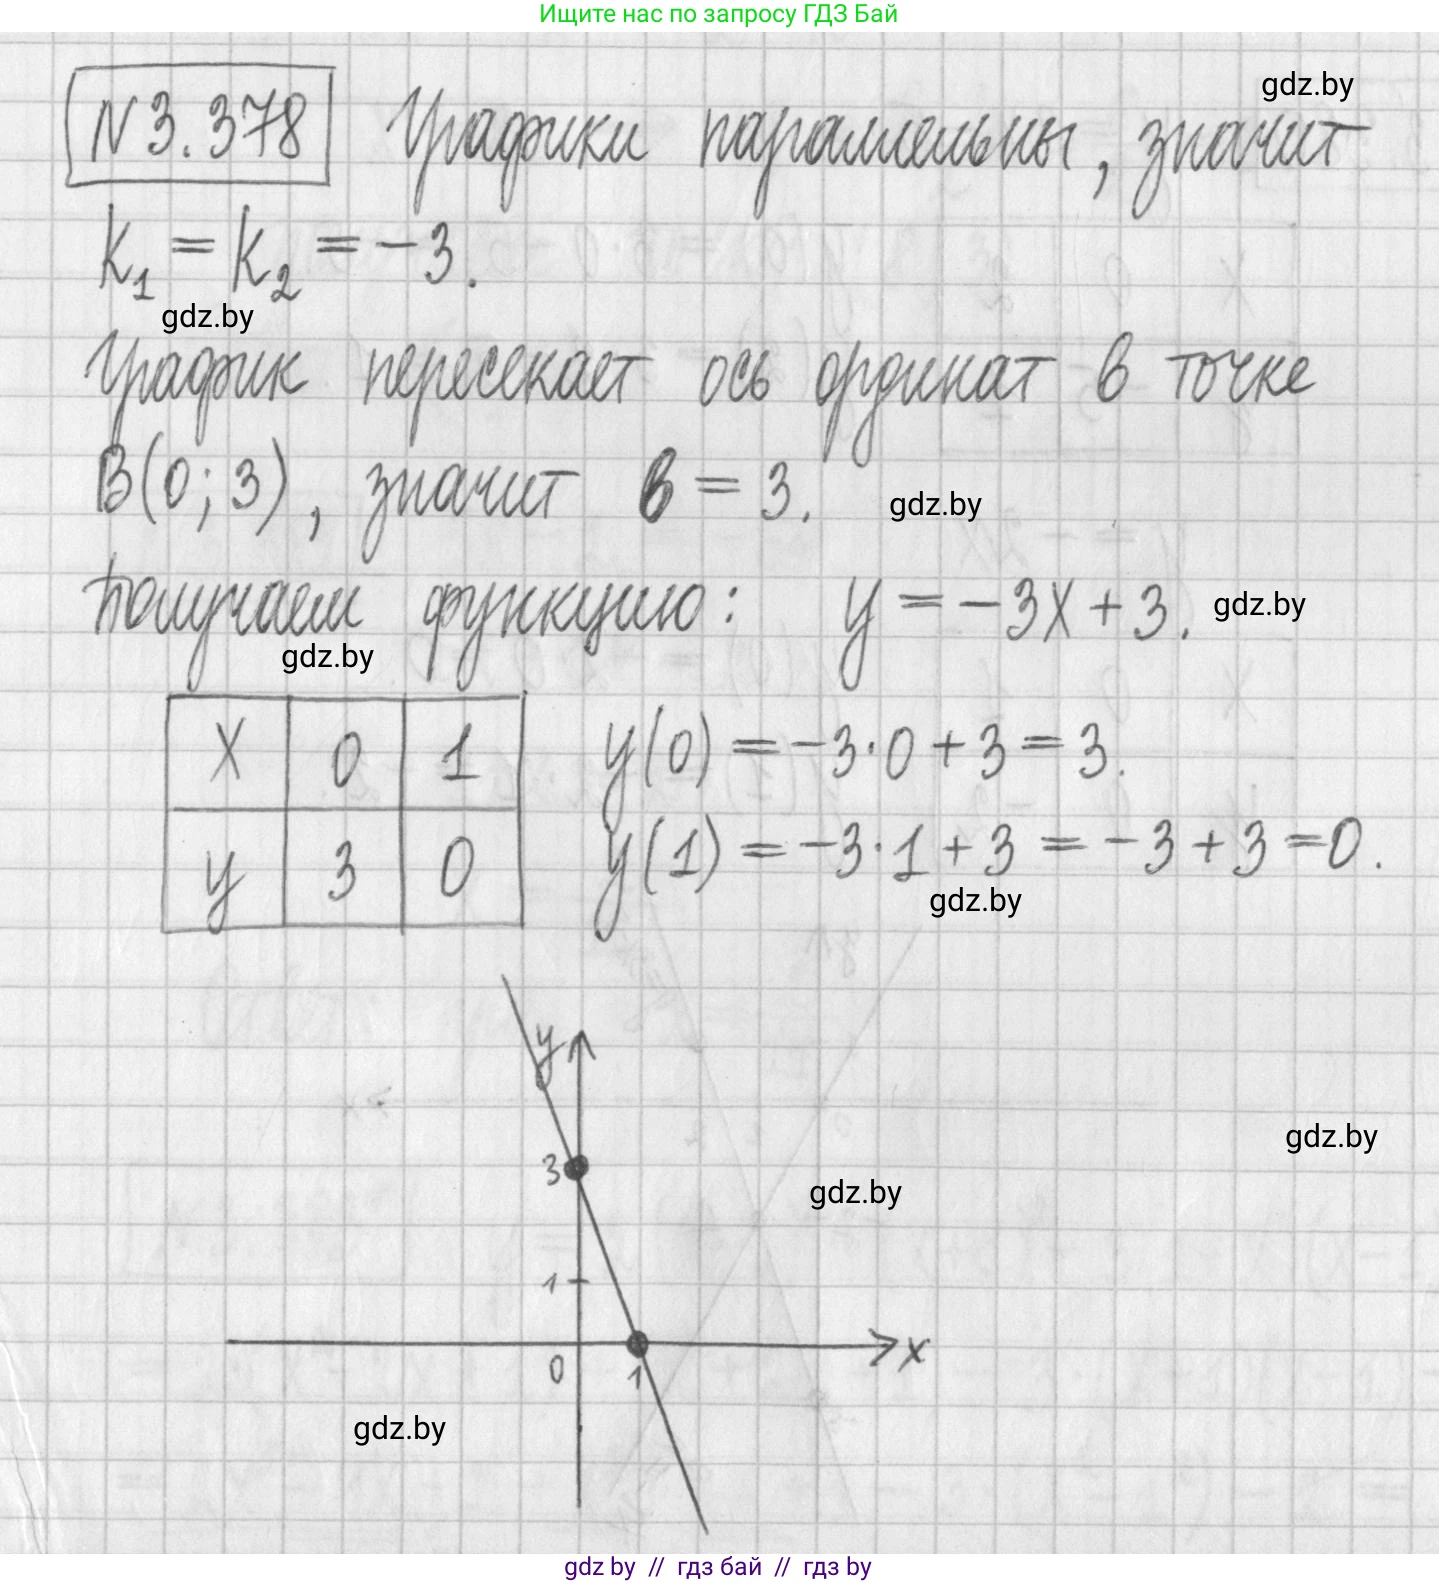 Ищите нас по запросу ГДЗ Бай
gdz.by
N 3.378 Графики параллельны, значит
k₁ = k₂ = -3.
gdz.by
График пересекает ось ординат в точке
B(0; 3), значит в = 3.
gdz.by
Получаем функцию: y = -3x + 3.
gdz.by
gdz.by
x 0 1
y 3 0
y(0) = -3·0 + 3 = 3.
y(1) = -3·1 + 3 = -3 + 3 = 0.
gdz.by
y
3
gdz.by
gdz.by
1
0 1 x
gdz.by
gdz by // гдз бай // гдз by